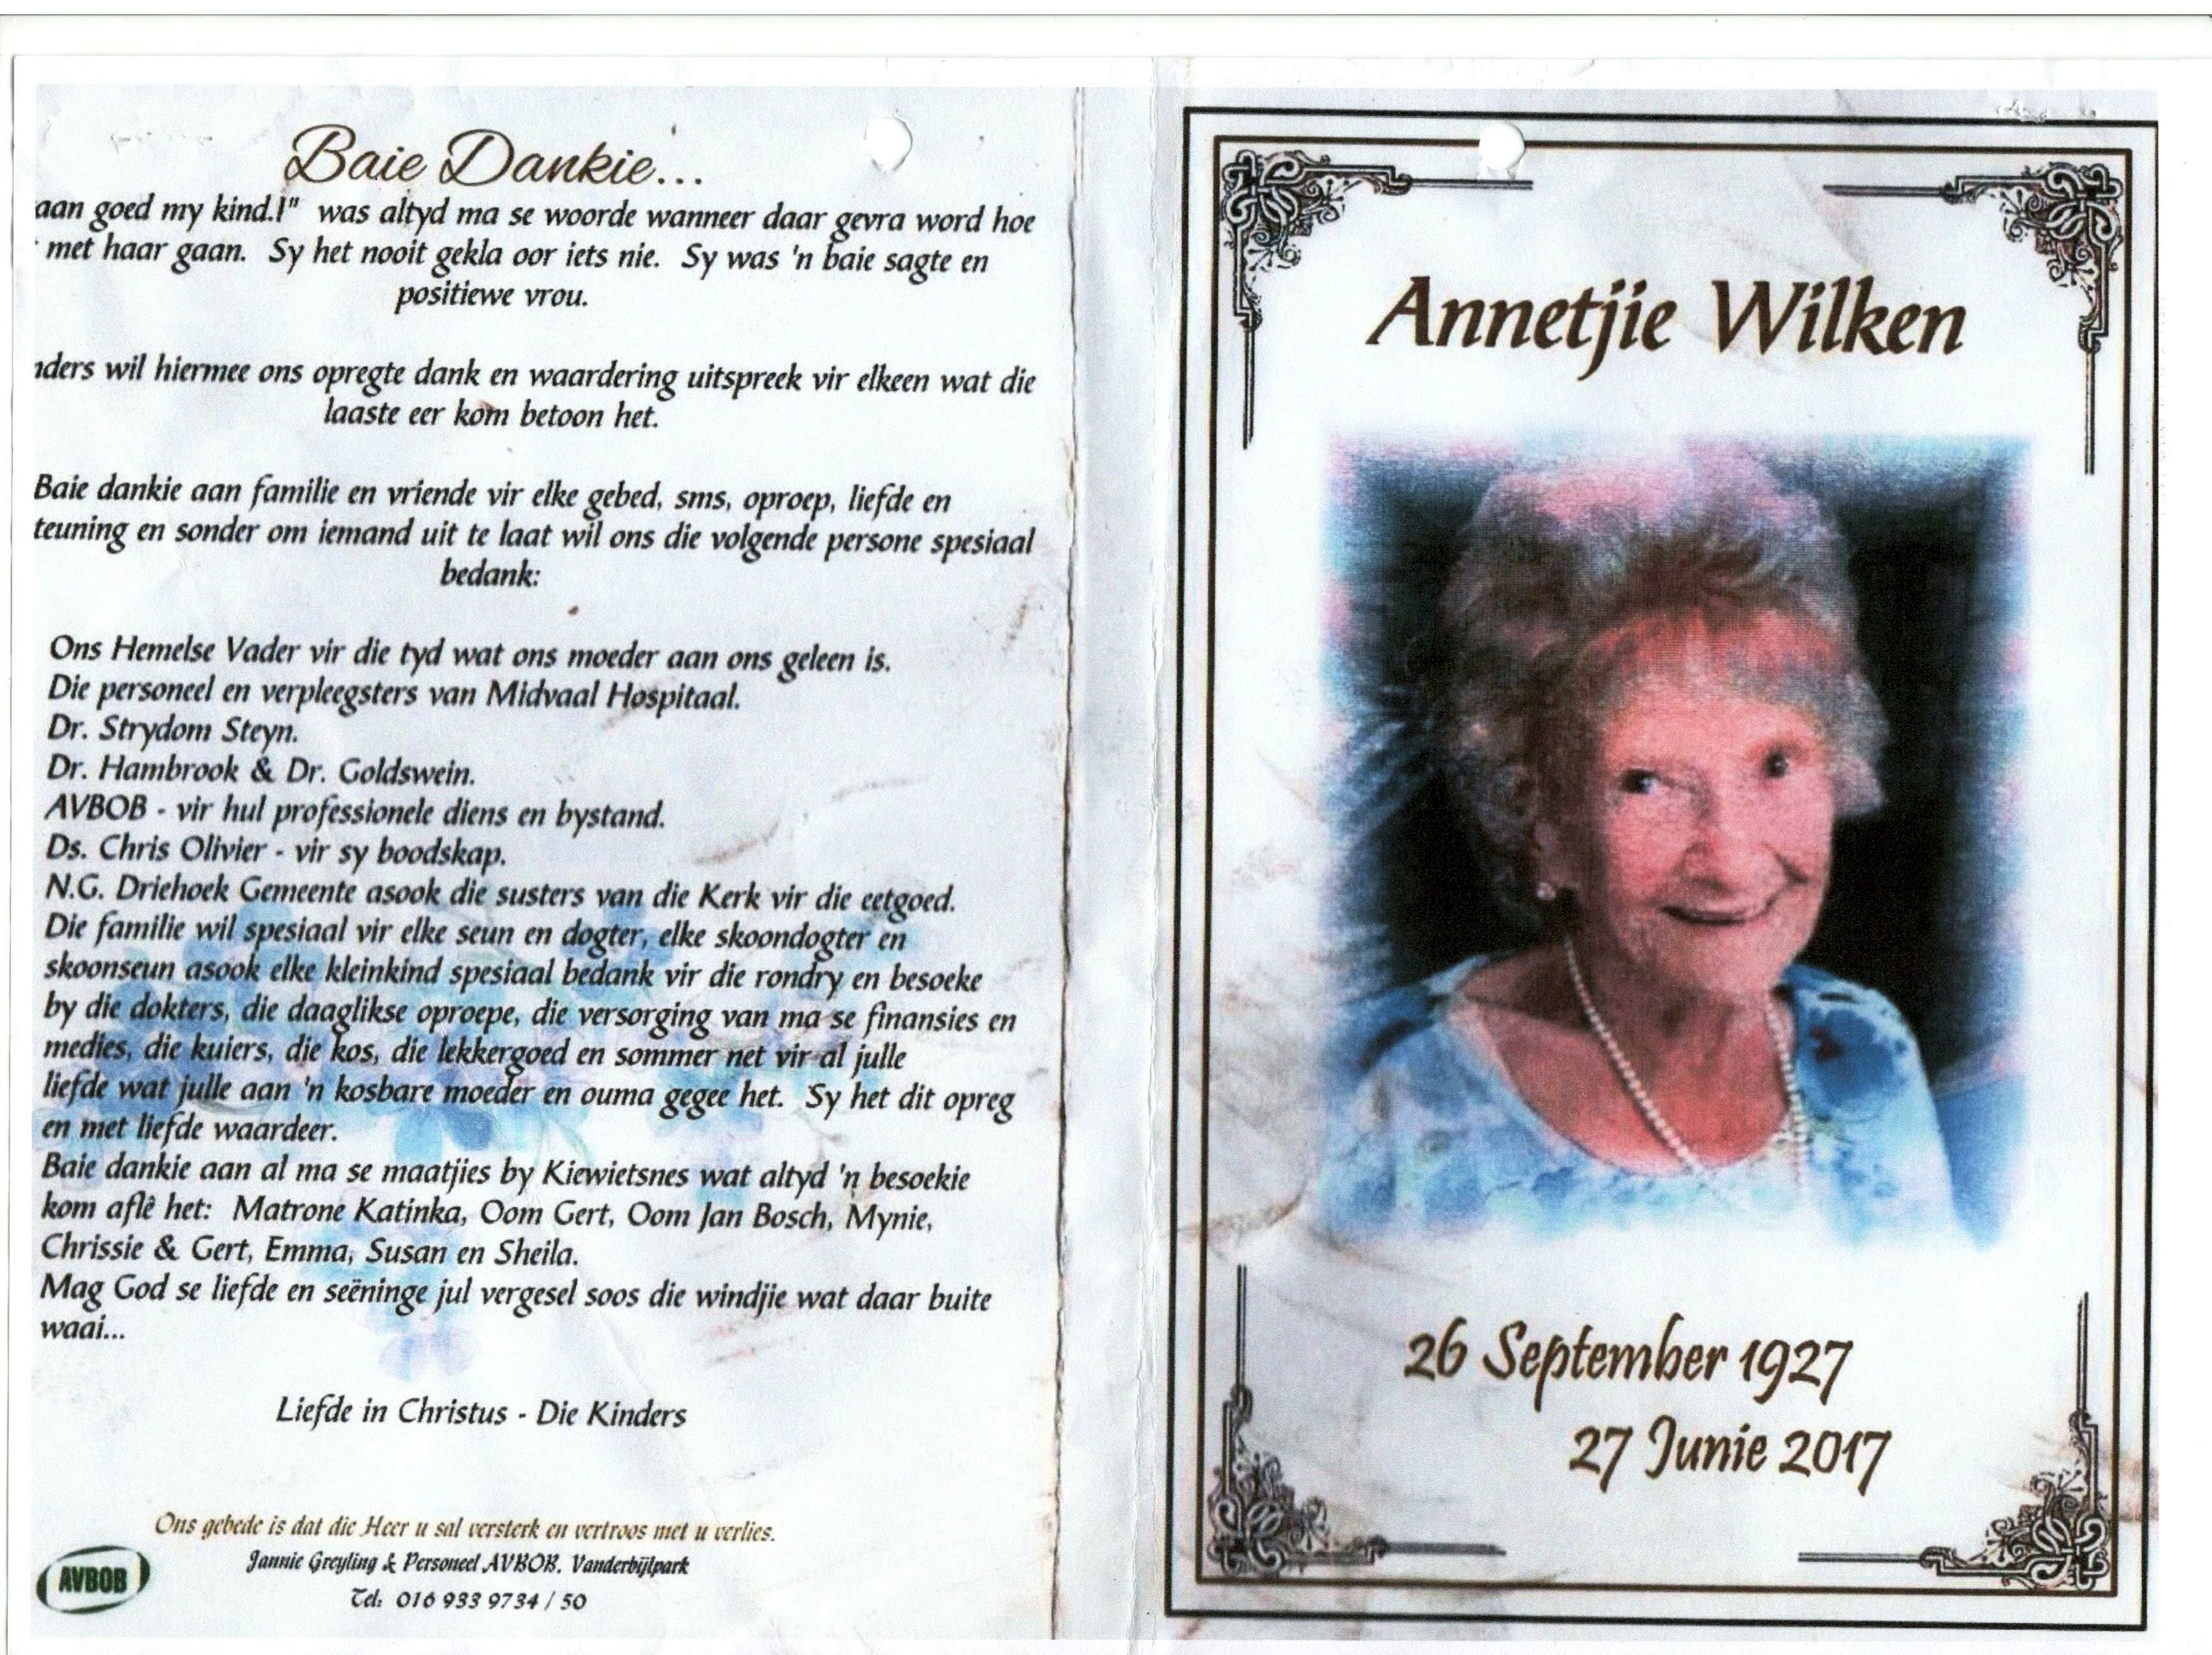 Baie Dankie...
aan goed my kind.!" was altyd ma se woorde wanneer daar gevra word hoe
met haar gaan. Sy het nooit gekla oor iets nie. Sy was 'n baie sagte en
positiewe vrou.
wil hiermee ons opregte dank en waardering uitspreek vir elkeen wat die
laaste eer kom betoon het.
Baie dankie aan familie en vriende vir elke gebed, sms, oproep, liefde en
teuning en sonder om iemand uit te laat wil ons die volgende persone spesiaal
bedank:
Ons Hemelse Vader vir die tyd wat ons moeder aan ons geleen is.
Die personeel en verpleegsters van Midvaal Hospitaal.
Dr. Strydom Steyn.
Dr. Hambrook & Dr. Goldswein.
AVBOB - vir hul professionele diens en bystand.
Ds. Chris Olivier - vir sy boodskap.
N.G. Driehoek Gemeente asook die susters van die Kerk vir die eetgoed.
Die familie wil spesiaal vir elke seun en dogter, elke skoondogter en
skoonseun asook elke kleinkind spesiaal bedank vir die rondry en besoeke
by die dokters, die daaglikse oproepe, die versorging van ma se finansies en
medies, die kuiers, die kos, die lekkergoed en sommer net vir al julle
liefde wat julle aan 'n kosbare moeder en ouma gegee het. Sy het dit opreg
en met liefde waardeer.
Baie dankie aan al ma se maatjies by Kiewietsnes wat altyd 'n besoekie
kom aflê het: Matrone Katinka, Oom Gert, Oom Jan Bosch, Mynie,
Chrissie & Gert, Emma, Susan en Sheila.
Mag God se liefde en seëninge jul vergesel soos die windjie wat daar buite
waai...
Liefde in Christus - Die Kinders
Ons gebede is dat die Heer u sal versterk en vertroos met u verlies.
Jannie Greyling & Personeel AVBOB, Vanderbijlpark
Tel: 016 933 9734 / 50
AVBOB
Annetjie Wilken
26 September 1927
27 Junie 2017